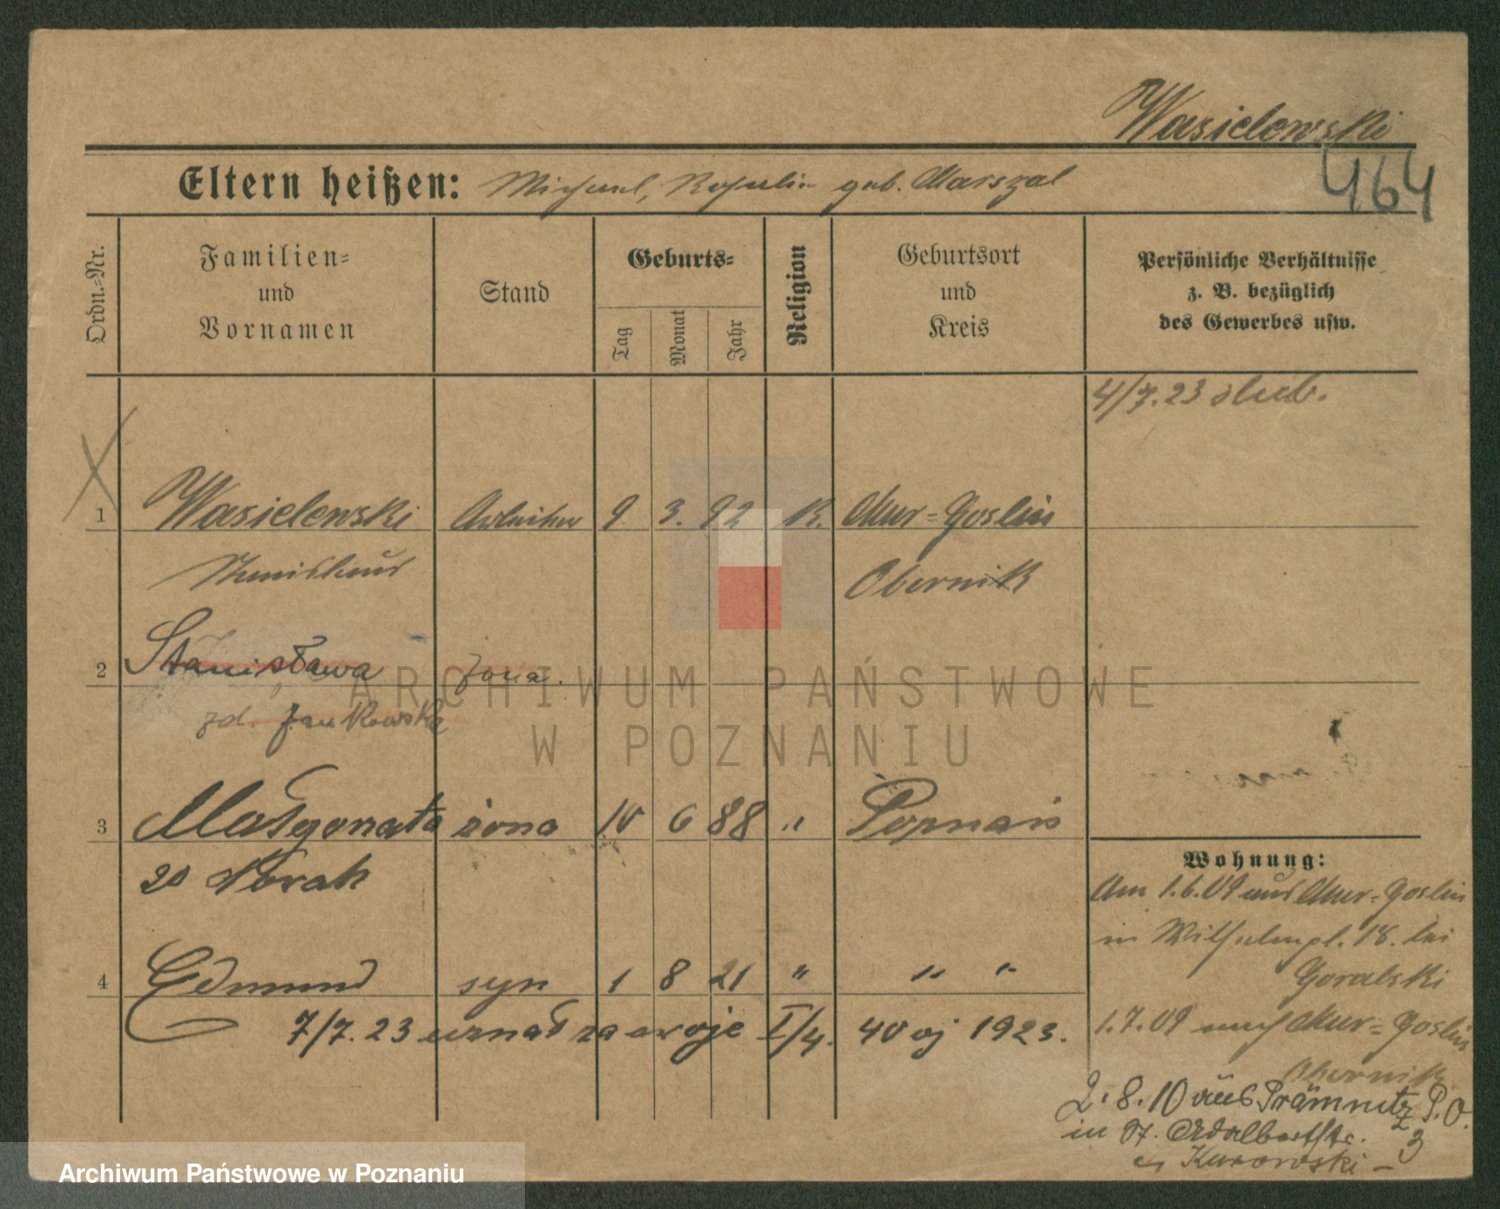 Wasielewski
464
Eltern heißen: Michael, Rosalie geb. Marszal
Ordn.-Nr.
Familien-
und
Vornamen
Stand
Geburts-
Tag
Monat
Jahr
Religion
Geburtsort
und
Kreis
Persönliche Verhältnisse
z. B. bezüglich
des Gewerbes usw.
4/7.23 slub.
1 Wasielewski Arbeiter 9 3. 92 K. Mur-Goslin
Stanislaus Obernik
2 Stanisława żona.
zd. Jankowska
3 Małgorzata żona 10 6 88 " Poznań
zd Norak
4 Edmund syn 1 8 21 " " "
7/7. 23 uznał za swoje I/4. 40 oj 1923.
Wohnung:
Am 1.6.09 aus Mur-Goslin
in Wilhelmpl. 18. bei
Goralski
1.7.09 nach Mur-Goslin
Obernik
2.8.10 aus Prämnitz P.O.
in St. Adalbertstr. 3
Kurowski
ARCHIWUM PAŃSTWOWE
W POZNANIU
Archiwum Państwowe w Poznaniu